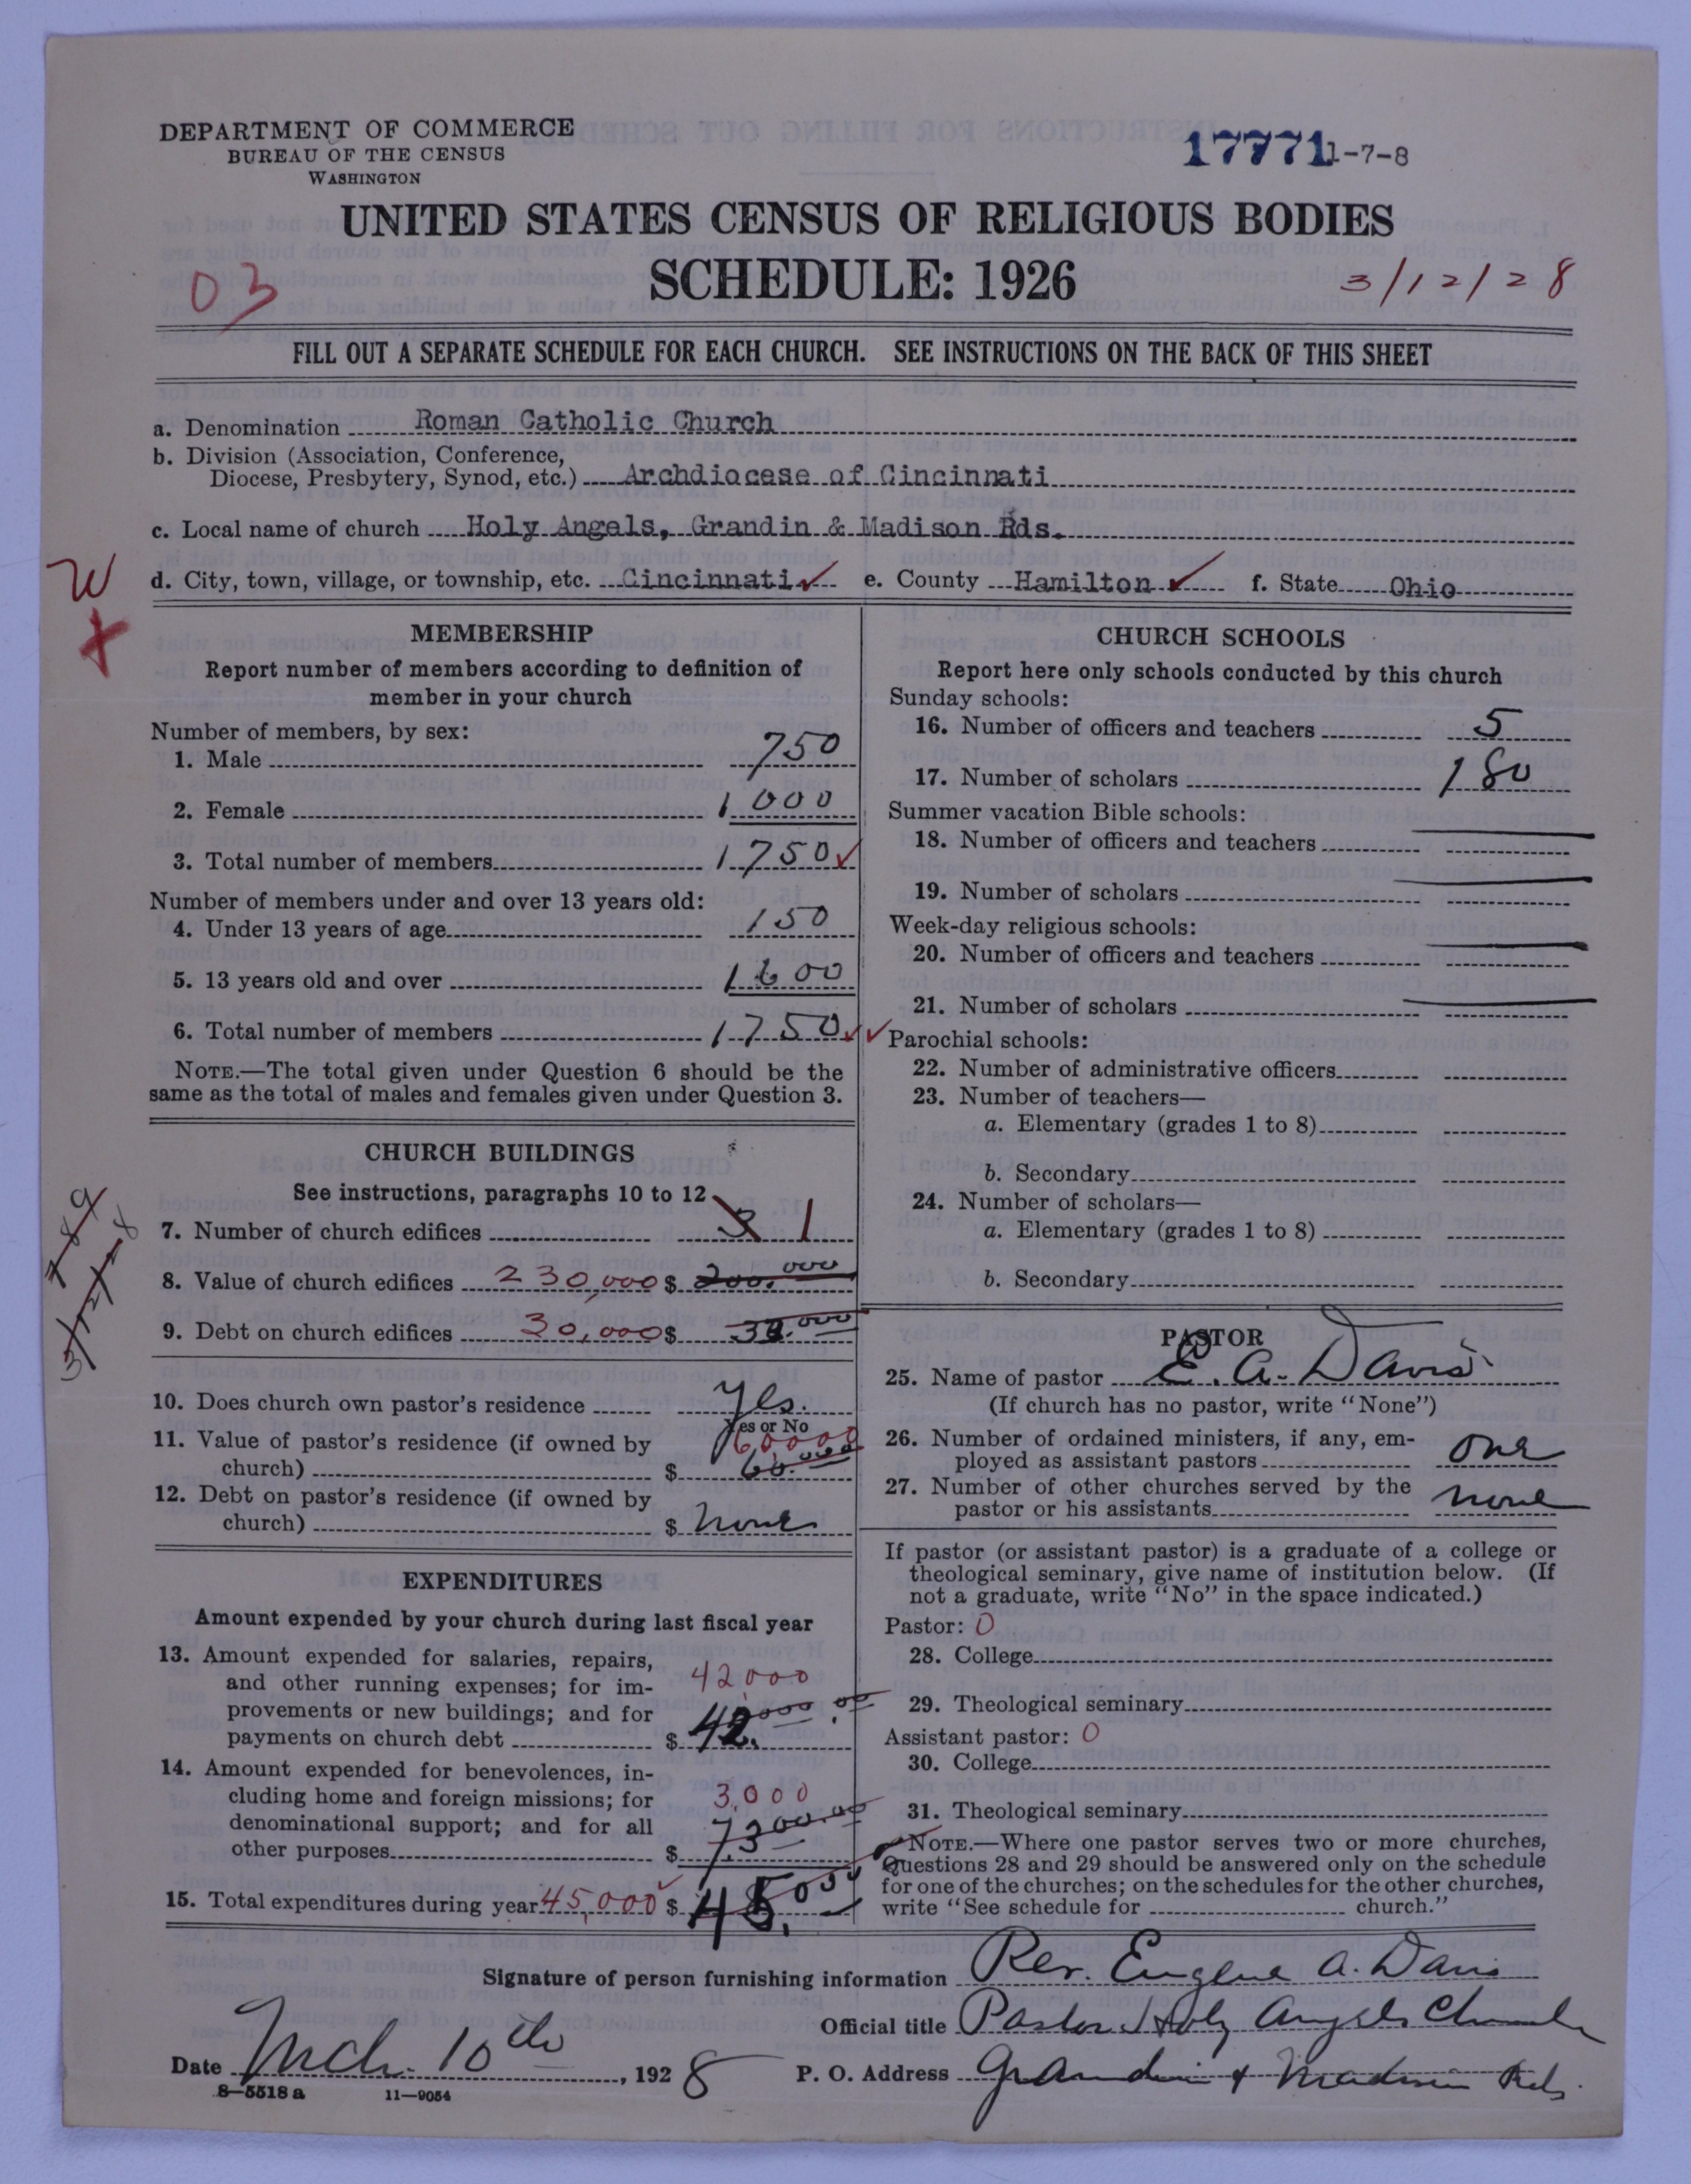 DEPARTMENT OF COMMERCE
BUREAU OF THE CENSUS
WASHINGTON
17771 1-7-8
UNITED STATES CENSUS OF RELIGIOUS BODIES
SCHEDULE: 1926
03
3/12/28
FILL OUT A SEPARATE SCHEDULE FOR EACH CHURCH. SEE INSTRUCTIONS ON THE BACK OF THIS SHEET
a. Denomination Roman Catholic Church
b. Division (Association, Conference,
Diocese, Presbytery, Synod, etc.) Archdiocese of Cincinnati
c. Local name of church Holy Angels, Grandin & Madison Rds.
W
d. City, town, village, or township, etc. Cincinnati ✓ e. County Hamilton ✓ f. State Ohio
X
MEMBERSHIP
Report number of members according to definition of
member in your church
Number of members, by sex:
1. Male 750
2. Female 1000
3. Total number of members 1750 ✓
Number of members under and over 13 years old:
4. Under 13 years of age 150
5. 13 years old and over 1600
6. Total number of members 1750 ✓✓
NOTE.—The total given under Question 6 should be the
same as the total of males and females given under Question 3.
CHURCH BUILDINGS
See instructions, paragraphs 10 to 12
7. Number of church edifices 3 1
8. Value of church edifices 230,000 $ 200.000
9. Debt on church edifices 30,000 $ 30.000
10. Does church own pastor's residence Yes.
Yes or No
11. Value of pastor's residence (if owned by 60000
church) $ 60.000
12. Debt on pastor's residence (if owned by
church) $ None
EXPENDITURES
Amount expended by your church during last fiscal year
13. Amount expended for salaries, repairs,
and other running expenses; for im- 42,000
provements or new buildings; and for
payments on church debt $ 42.000.00
14. Amount expended for benevolences, in-
cluding home and foreign missions; for 3,000
denominational support; and for all
other purposes $ 7300.00
15. Total expenditures during year 45,000 ✓ $ 45.000
CHURCH SCHOOLS
Report here only schools conducted by this church
Sunday schools:
16. Number of officers and teachers 5
17. Number of scholars 180
Summer vacation Bible schools:
18. Number of officers and teachers
19. Number of scholars
Week-day religious schools:
20. Number of officers and teachers
21. Number of scholars
Parochial schools:
22. Number of administrative officers
23. Number of teachers—
a. Elementary (grades 1 to 8)
b. Secondary
24. Number of scholars—
a. Elementary (grades 1 to 8)
b. Secondary
PASTOR
25. Name of pastor E. A. Davis
(If church has no pastor, write "None")
26. Number of ordained ministers, if any, em-
ployed as assistant pastors one
27. Number of other churches served by the
pastor or his assistants none
If pastor (or assistant pastor) is a graduate of a college or
theological seminary, give name of institution below. (If
not a graduate, write "No" in the space indicated.)
Pastor: 0
28. College
29. Theological seminary
Assistant pastor: 0
30. College
31. Theological seminary
NOTE.—Where one pastor serves two or more churches,
Questions 28 and 29 should be answered only on the schedule
for one of the churches; on the schedules for the other churches,
write "See schedule for church."
Signature of person furnishing information Rev. Eugene A. Davis
Official title Pastor Holy Angels Church
Date Mch. 10th, 1928 P. O. Address Grandin & Madison Rds.
8—5518 a 11—9054